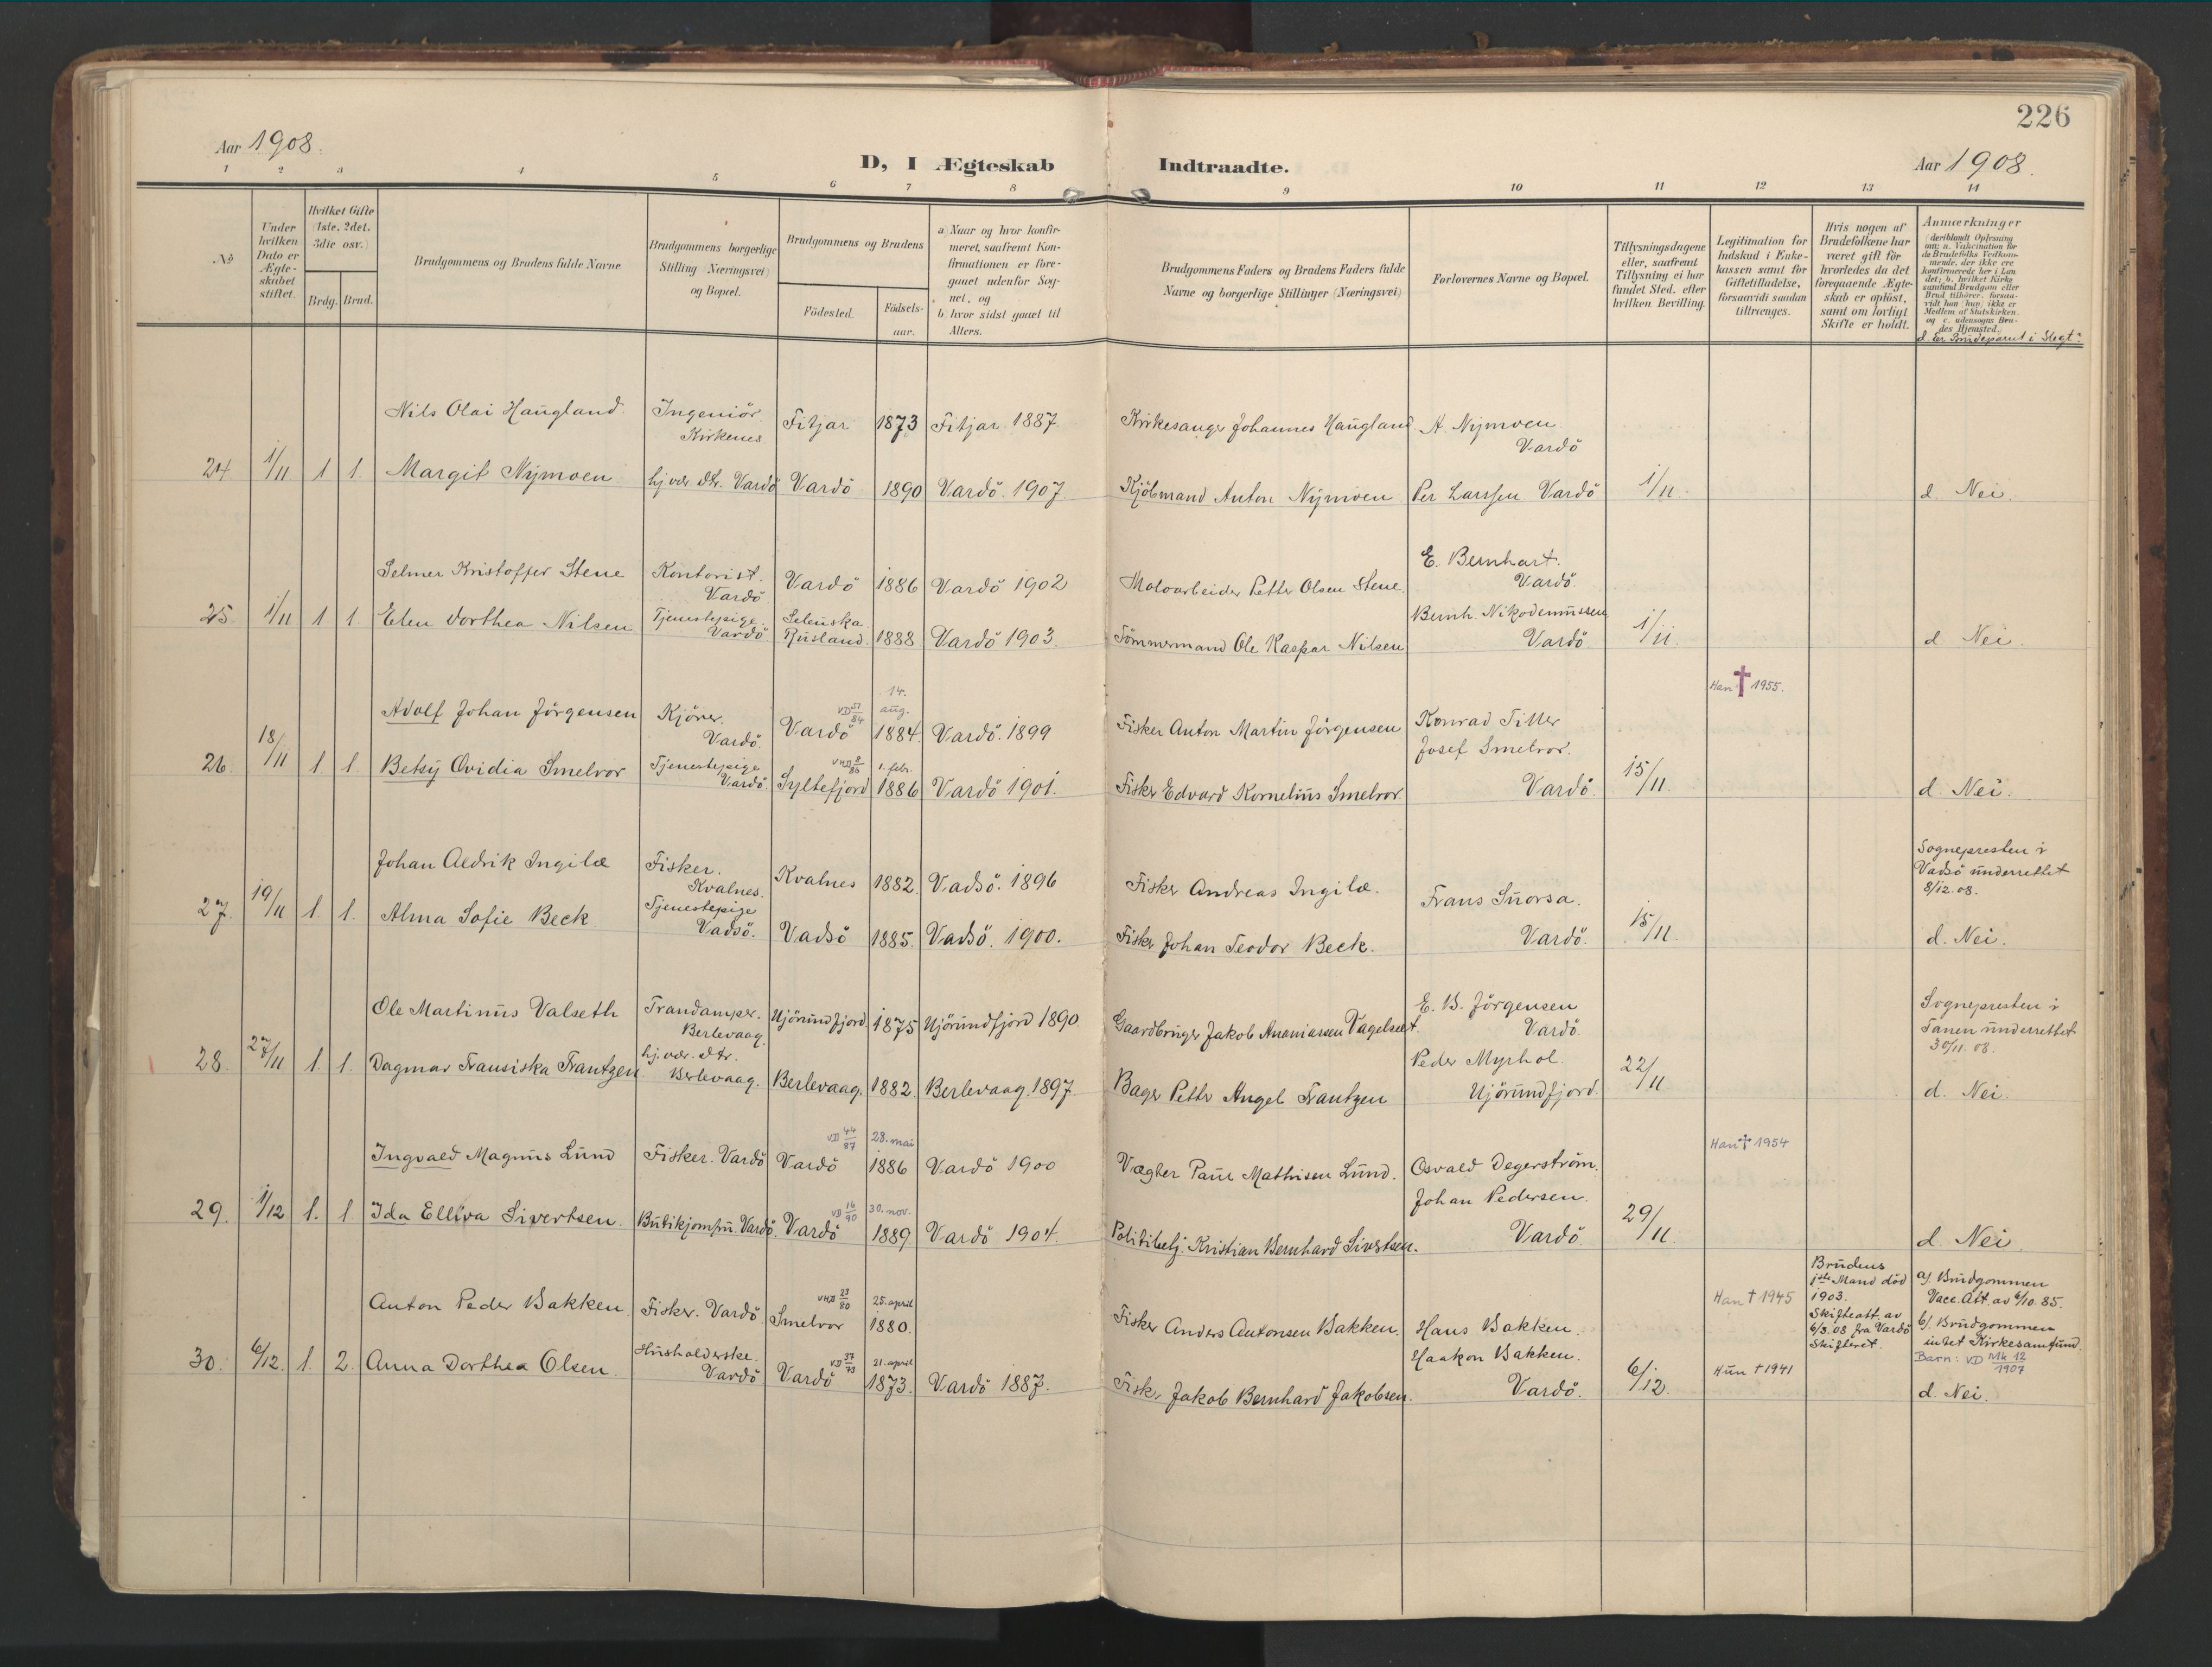 226
Aar 1908.
D, I Ægteskab Indtraadte.
Aar 1908.
1 2 3 4 5 6 7 8 9 10 11 12 13 14
No
Under
hvilken
Dato er
Ægte-
skabet
stiftet.
Hvilket Gifte
(1ste, 2det,
3die osv.)
Brdg. Brud.
Brudgommens og Brudens fulde Navne
Brudgommens borgerlige
Stilling (Næringsvei)
og Bopæl.
Brudgommens og Brudens
Fødested.
Fødsels-
aar.
a) Naar og hvor konfir-
meret, saafremt Kon-
firmationen er fore-
gaaet udenfor Sog-
net, og
b. hvor sidst gaaet til
Alters.
Brudgommens Faders og Brudens Faders fulde
Navne og borgerlige Stillinger (Næringsvei)
Forlovernes Navne og Bopæl.
Tillysningsdagene
eller, saafremt
Tillysning ei har
fundet Sted, efter
hvilken Bevilling.
Legitimation for
Indskud i Enke-
kassen samt for
Giftetilladelse,
forsaavidt saadan
tiltrænges.
Hvis nogen af
Brudefolkene har
været gift før
hvorledes da det
foregaaende Ægte-
skab er opløst,
samt om lovligt
Skifte er holdt.
Anmærkninger
(deriblandt Oplysning
om: a. Vaksination for
de Brudefolks Vedkom-
mende, der ikke ere
konfirmerede her i Lan
det; b. hvilket Kirke
samfund Brudgom eller
Brud tilhører, forsaa-
vidt han (hun) ikke er
Medlem af Statskirken.
og c. udensogns Bru-
des Hjemsted.
d Er Brudeparret i Slegt?
Nils Olai Haugland. Ingeniör Kirkenes Fitjar 1873 Fitjar 1887. Kirkesanger Johannes Haugland A. Nymoen
Vardö
24. 1/11 1 1. Margit Nymoen hj.vær. dtr. Vardö Vardö 1890 Vardö. 1907. Kjöbmand Anton Nymoen Per Larssen Vardö 1/11. d. Nei.
Selmer Kristoffer Stene Kontorist. Vardö Vardö 1886 Vardö 1902 Moloarbeider Petter Olsen Stene. E. Bernhart.
Vardö.
25. 1/11 1 1. Elen Dorthea Nilsen Tjenestepige. Vardö Rusland. 1888. Vardö 1903. Tömmermand Ole Kaspar Nilsen Bernh. Nikodemussen
Vardö 1/11. d Nei.
Han † 1955.
Adolf Johan Jörgensen Kjörer. Vardö. Vardö VD 51/84 14. aug. 1884. Vardö. 1899 Fisker Anton Martin Jörgensen Konrad Tiller
Josef Smelror.
26. 18/11 1. 1. Betsy Ovidia Smelror Tjenestepige Vardö. Syltefjord 1. febr. 1886 Vardö 1901. Fisker Edvard Kornelius Smelror. Vardö. 15/11. d. Nei.
Johan Aldrik Ingilæ Fisker. Kvalnes. Kvalnes 1882. Vadsö. 1896 Fisker Andreas Ingilæ. Frans Suorsa.
Sognepresten i
Vadsö underrettet
8/12.08.
27. 19/11 1. 1. Alma Sofie Beck Tjenestepige Vadsö. Vadsö 1885. Vadsö. 1900. Fisker Johan Teodor Beck. Vardö. 15/11. d. Nei.
Ole Martinus Valseth Trandamper. Berlevaag. Hjörundfjord 1875 Hjörundfjord 1890. Gaardbruger Jakob Ananiassen Vagelsæt. E. B. Jörgensen
Vardö.
Sognepresten i
Tanen underrettet
30/11.08.
28. 27/11 1. 1. Dagmar Fransiska Frantzen hj.vær. dtr. Berlevaag. Berlevaag. 1882. Berlevaag. 1897 Bager Petter Angel Frantzen Peder Myrhol.
Hjörundfjord. 22/11 d. Nei.
Han † 1954
Ingvald Magnus Lund Fisker. Vardö Vardö VD 44/87 28. mai 1886 Vardö 1900 Vægter Paul Mathisen Lund. Osvald Degerström.
Johan Pedersen.
29. 1/12 1. 1 Ida Elliva Sivertsen. Butikjomfru. Vardö. Vardö VD 16/90 30. nov. 1889. Vardö 1904. Politibetj. Kristian Bernhard Sivertsen. Vardö 29/11. d. Nei.
Anton Peder Bakken. Fisker. Vardö Smelror VHD 23/80 25. april 1880. Fisker Anders Antonsen Bakken. Hans Bakken.
Haakon Bakken.
Han † 1945
Brudens
1ste Mand död
1903.
Skifteatt. av
6/3.08 fra Vardö
Skifteret.
a/. Brudgommen
Vacc. Att. av 6/10. 85.
b/. Brudgommen
intet Kirkesamfund.
Barn: VD Mk 12/1907
30. 6/12. 1. 2. Anna Dorthea Olsen. Husholderske. Vardö Vardö VD 37/73 21. april 1873. Vardö 1887. Fisker Jakob Bernhard Jakobsen. Vardö. 6/12. Hun † 1941 d. Nei.